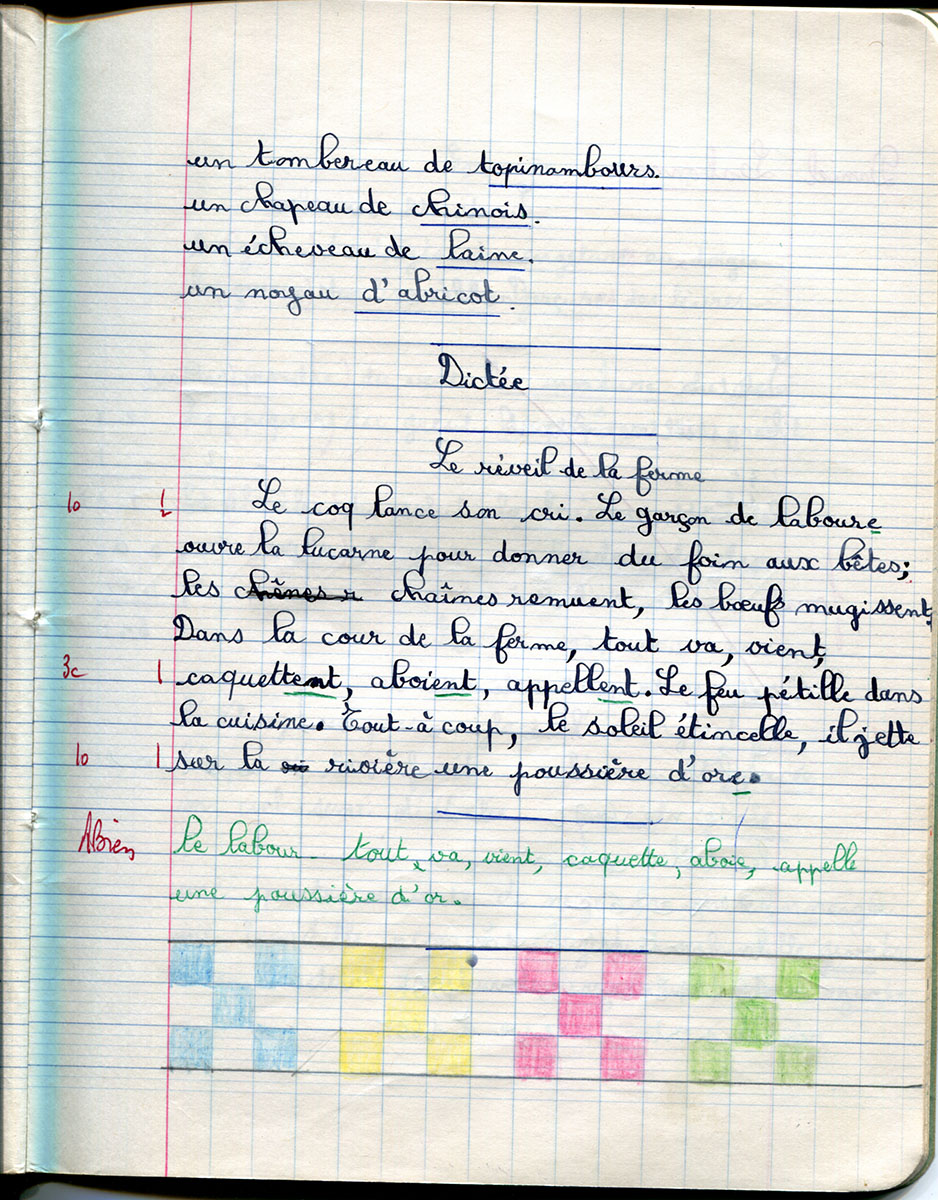 un tombereau de topinambours.
un chapeau de chinois.
un écheveau de laine.
un noyau d'abricot.
Dictée
Le réveil de la ferme
Le coq lance son cri. Le garçon de laboure
ouvre la lucarne pour donner du foin aux bêtes;
les chênes r chaînes remuent, les bœufs mugissent.
Dans la cour de la ferme, tout va, vient,
3c 1 caquettent, aboient, appellent. Le feu pétille dans
la cuisine. Tout-à coup, le soleil étincelle, il jette
sur la rivière une poussière d'ore.
ABien le labour - tout, va, vient, caquette, aboie, appelle
une poussière d'or.